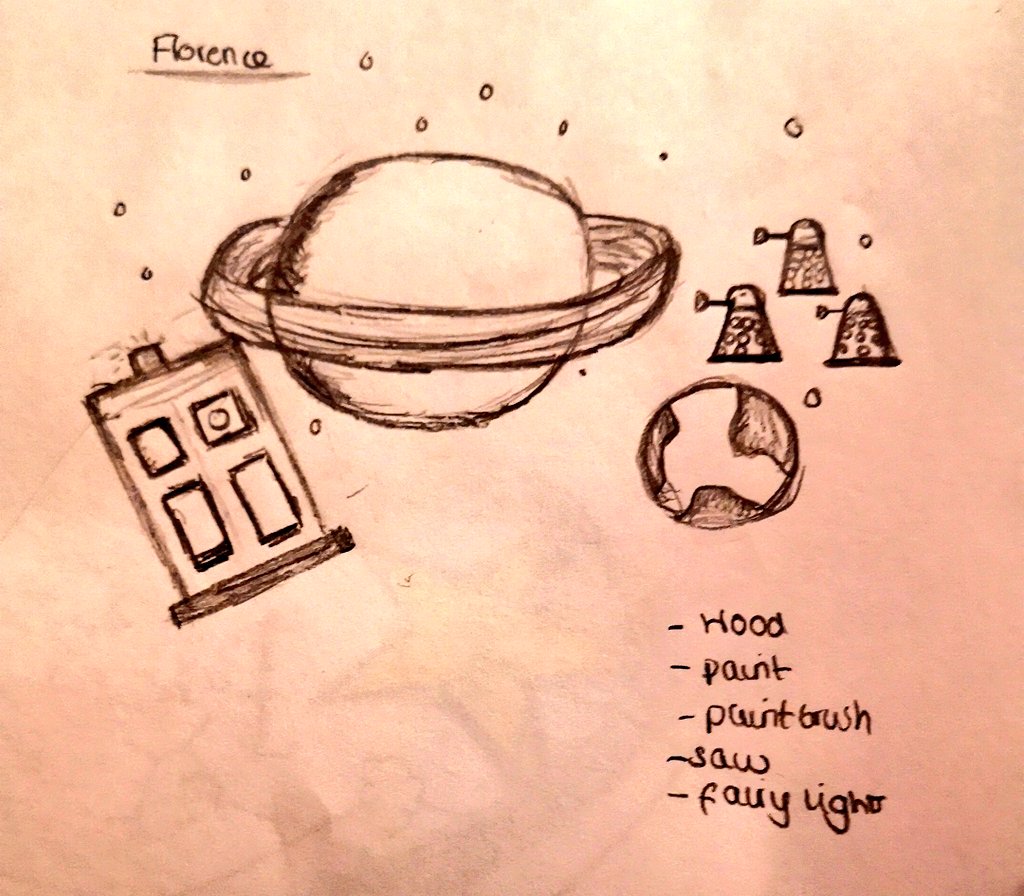 Florence
- Wood
- paint
- paintbrush
- saw
- fairy lights